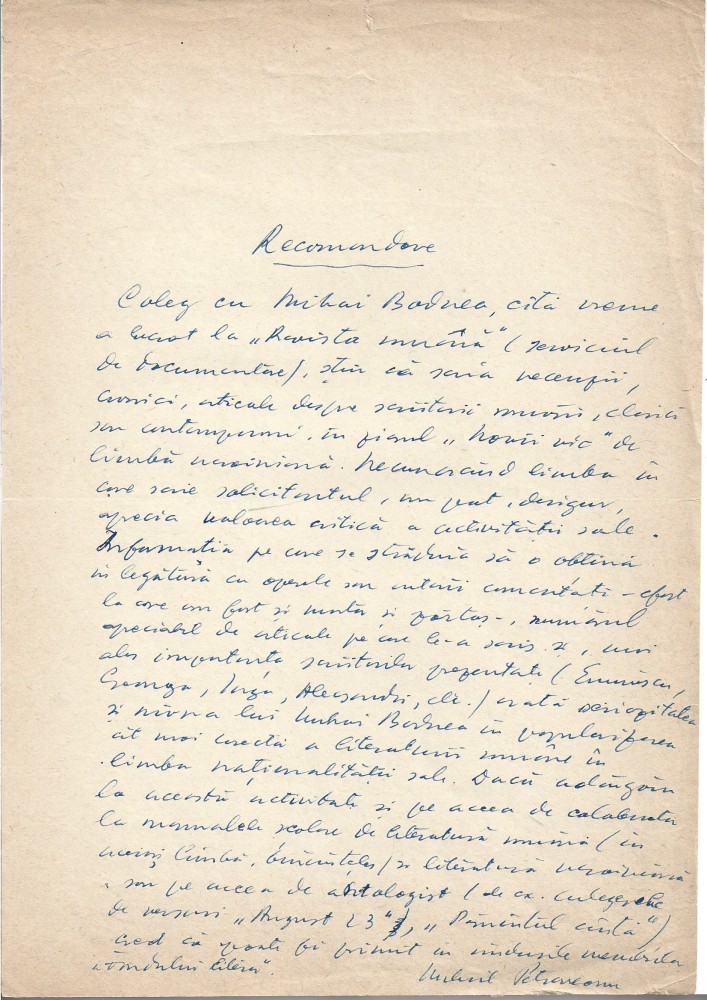 Recomandare
Coleg cu Mihai Bodnea, cîtă vreme
a lucrat la „Revista română" (serviciul
de documentare), știu că scria recenzii,
cronici, articole despre scriitorii români, clasici
sau contemporani, în ziarul „Novîi vic" de
limbă ucrainiană. Necunoscînd limba în
care scrie solicitantul, nu pot, desigur,
aprecia valoarea critică a activității sale.
Informația pe care se străduia să o obțină
în legătură cu operele sau autorii comentați – efort
la care am fost și martor și părtaș –, numărul
apreciabil de articole pe care le-a scris și, mai
ales importanța scriitorilor prezentați (Eminescu,
Creanga, Iorga, Alecsandri, etc.) arată seriozitatea
și rîvna lui Mihai Bodnea în popularizarea
cît mai corectă a literaturii române în
limba naționalității sale. Dacă adăugăm
la această activitate și pe aceea de colaborator
la manualele școlare de literatură română (în
aceiași limbă, bineînțeles) și literatură ucrainiană
sau pe aceea de antologist (de ex. culegerile
de versuri „August 23", „Pămîntul cîntă")
cred că poate fi primit în rîndurile membrilor
„Fondului literar".
Mihail Petroveanu